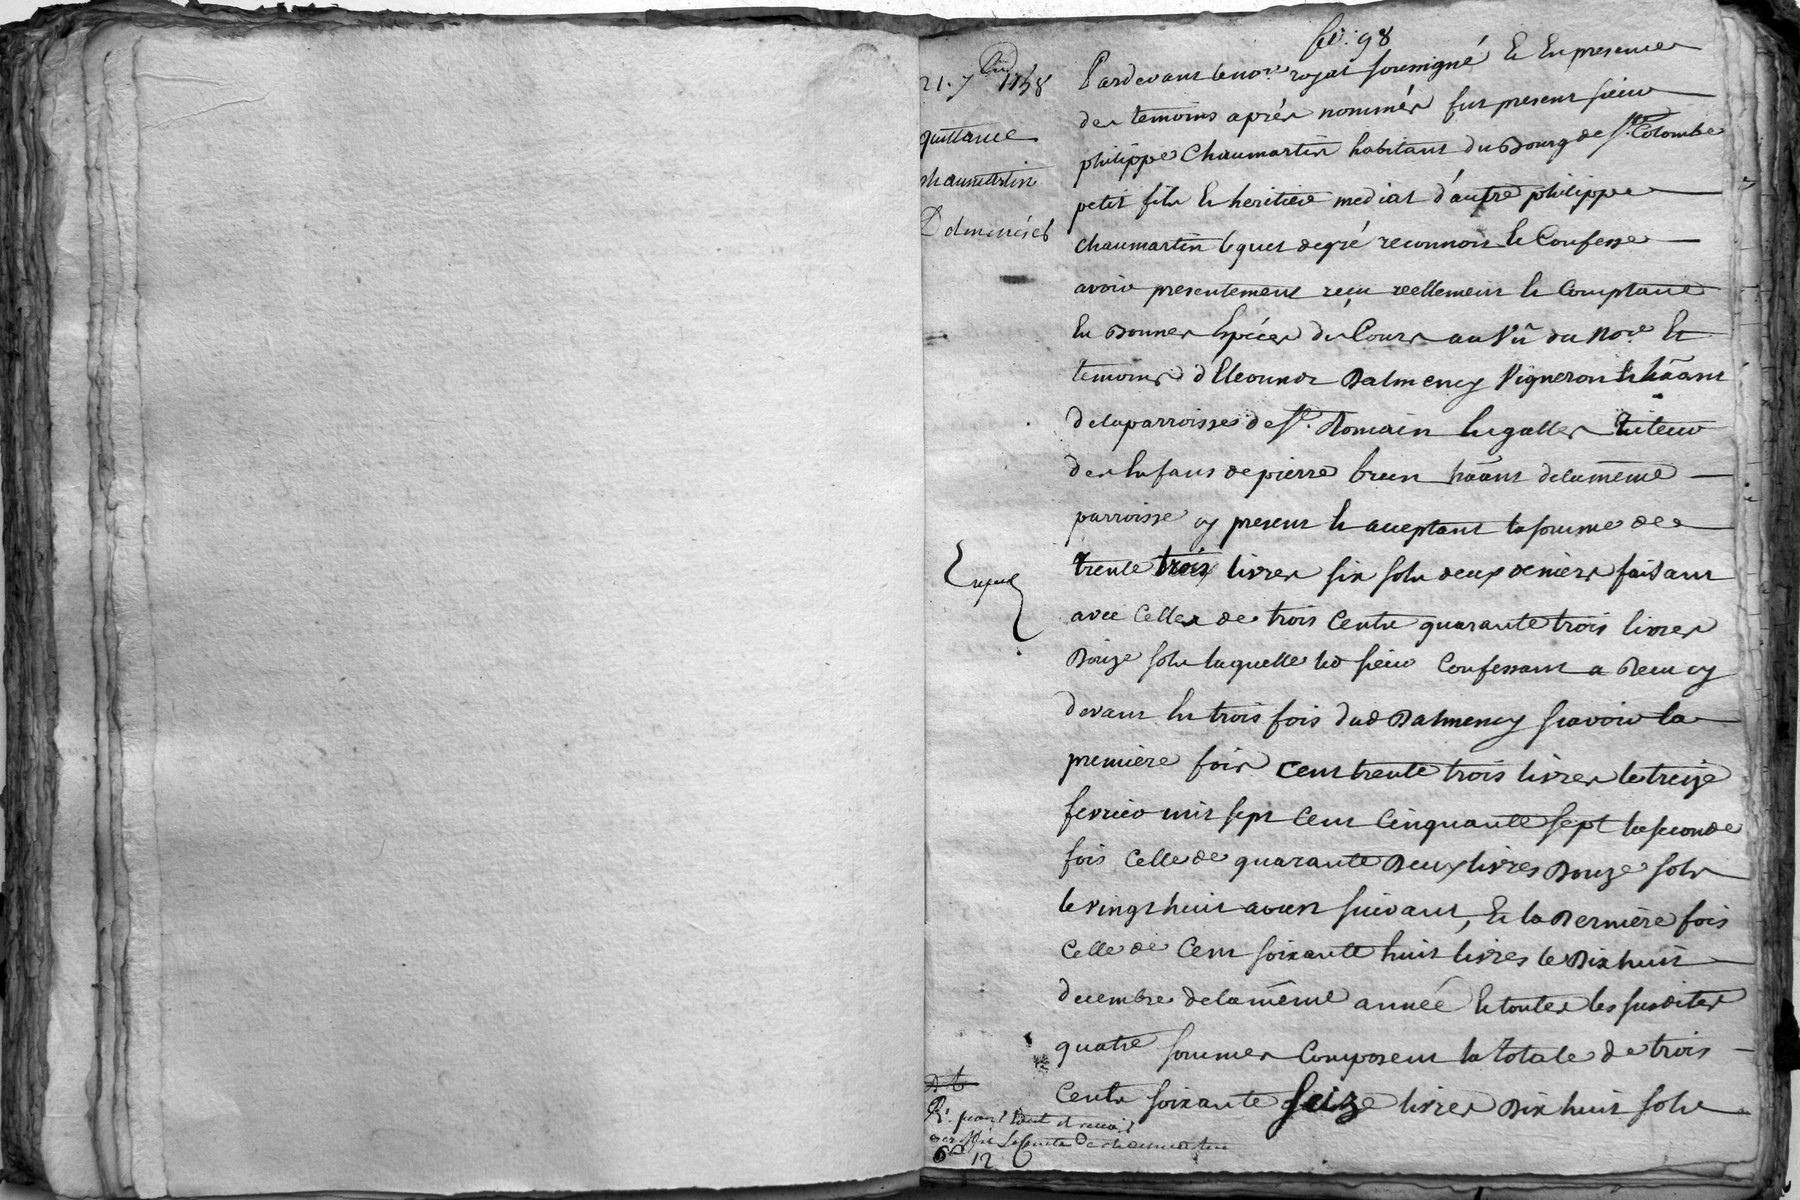 fo. 98
21. 7bre 1758
quittance
chaumartin
Dalmencÿ
Expedié
Pardevant le nore royal soussigné et en presence
des temoins après nommés fut present sieur
philippe Chaumartin habitant du Bourg de Ste Colombe
petit fils et heritier mediat d'autre philippe
chaumartin lequel de gré reconnoit et Confesse
avoir presentement reçu reellement et Comptant
en Bonnes Espéces du Cours au Vû du nore et
temoins d'Eleonnor Dalmency Vigneron et hãant
de la parroisse de St. Romain en galles Tuteur
des enfans de pierre brun hãant de la même
parroisse cy present et acceptant la somme de
trente trois livres six sols deux deniers faisant
avec Celles de trois Cents quarante trois livres
Douze sols laquelle led sieur Confessant a Recu cy
devant en trois fois dud Dalmency scavoir la
premiere fois cent trente trois livres le treize
fevrier mil sept Cent Cinquante sept la seconde
fois Celle de quarante Deux livres Douze sols
le vingt huit aoust suivant, Et la Derniere fois
Celle de Cent soixante huit livres le Dix huit
decembre de la même année et toutes les susdites
quatre sommes Composent la totale de trois
Cents soixante seize livres Dix huit sols
12